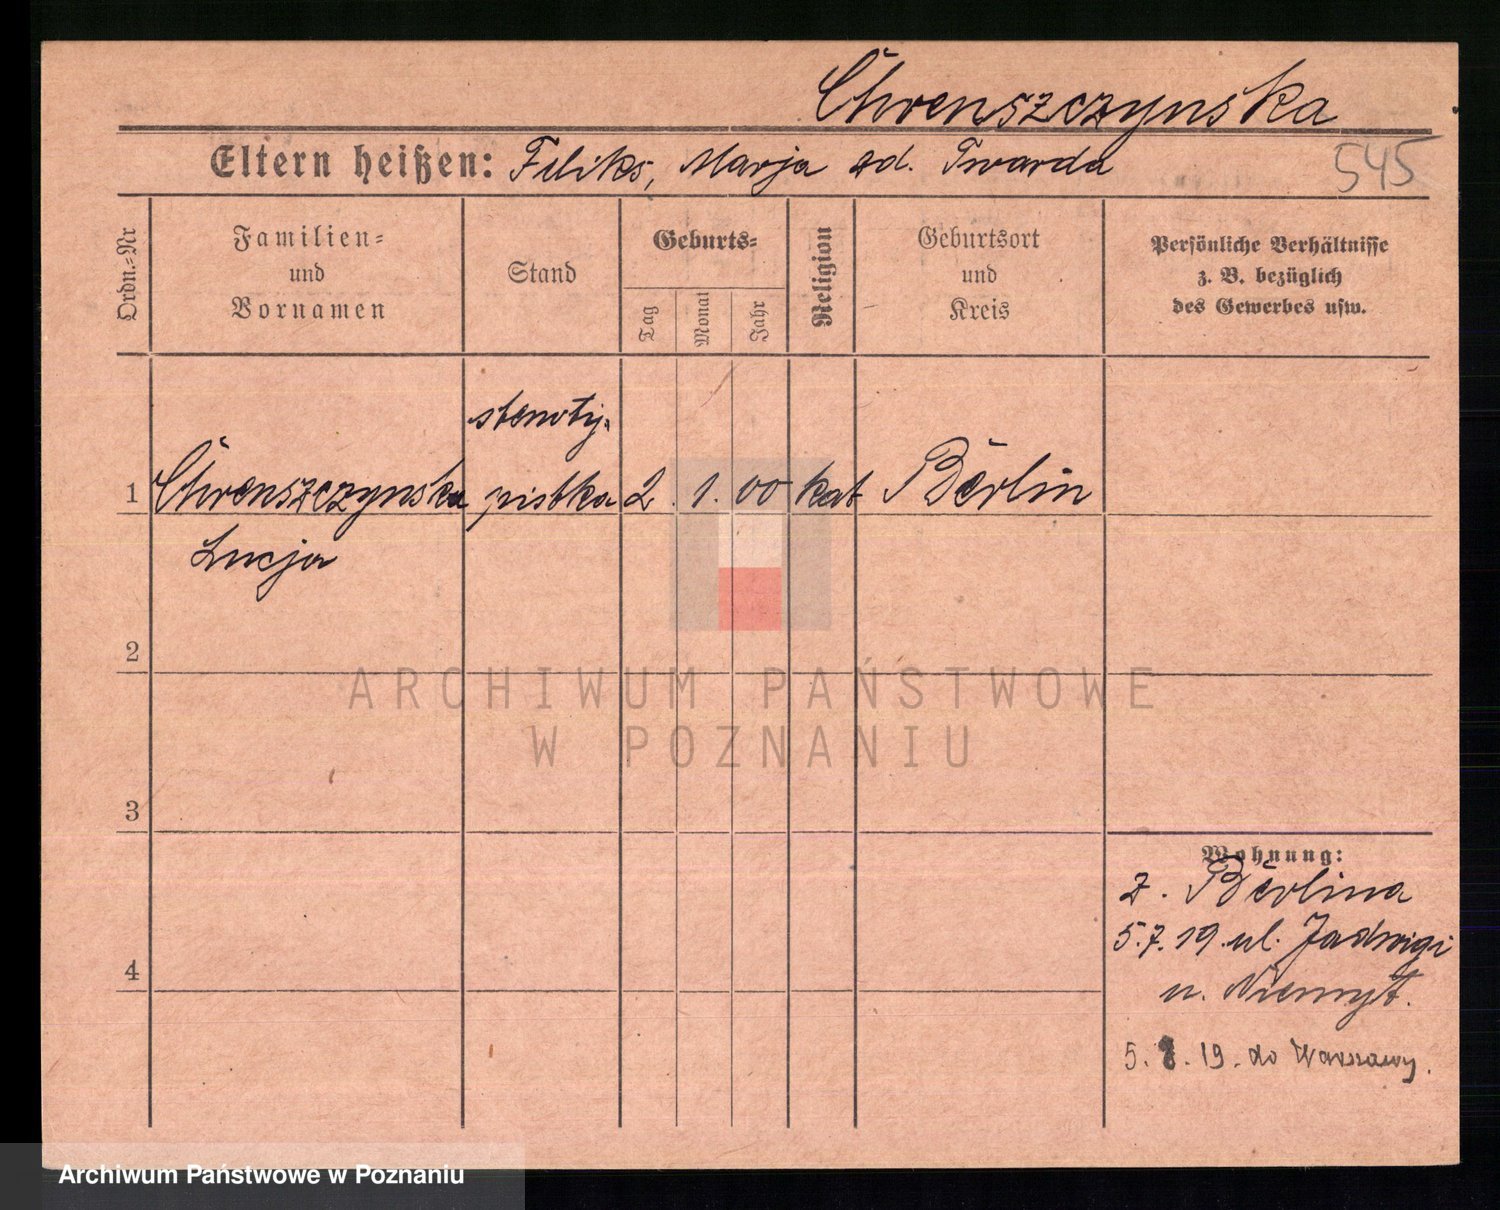 Chrenszczynska
Eltern heißen: Filiks, Marja zd. Twarda
545
Ordn.=Nr
Familien=
und
Vornamen
Stand
Geburts=
Tag
Monat
Jahr
Religion
Geburtsort
und
Kreis
Persönliche Verhältnisse
z. B. bezüglich
des Gewerbes usw.
stenoty-
1 Chrenszczynska pistka 2. 1. 00 kat Berlin
Lucja
2
ARCHIWUM PAŃSTWOWE
W POZNANIU
3
Wohnung:
z. Berlina
5.7.19. ul. Jadwigi
4
u. Niemyt.
5. 8. 19. do Warszawy.
Archiwum Państwowe w Poznaniu